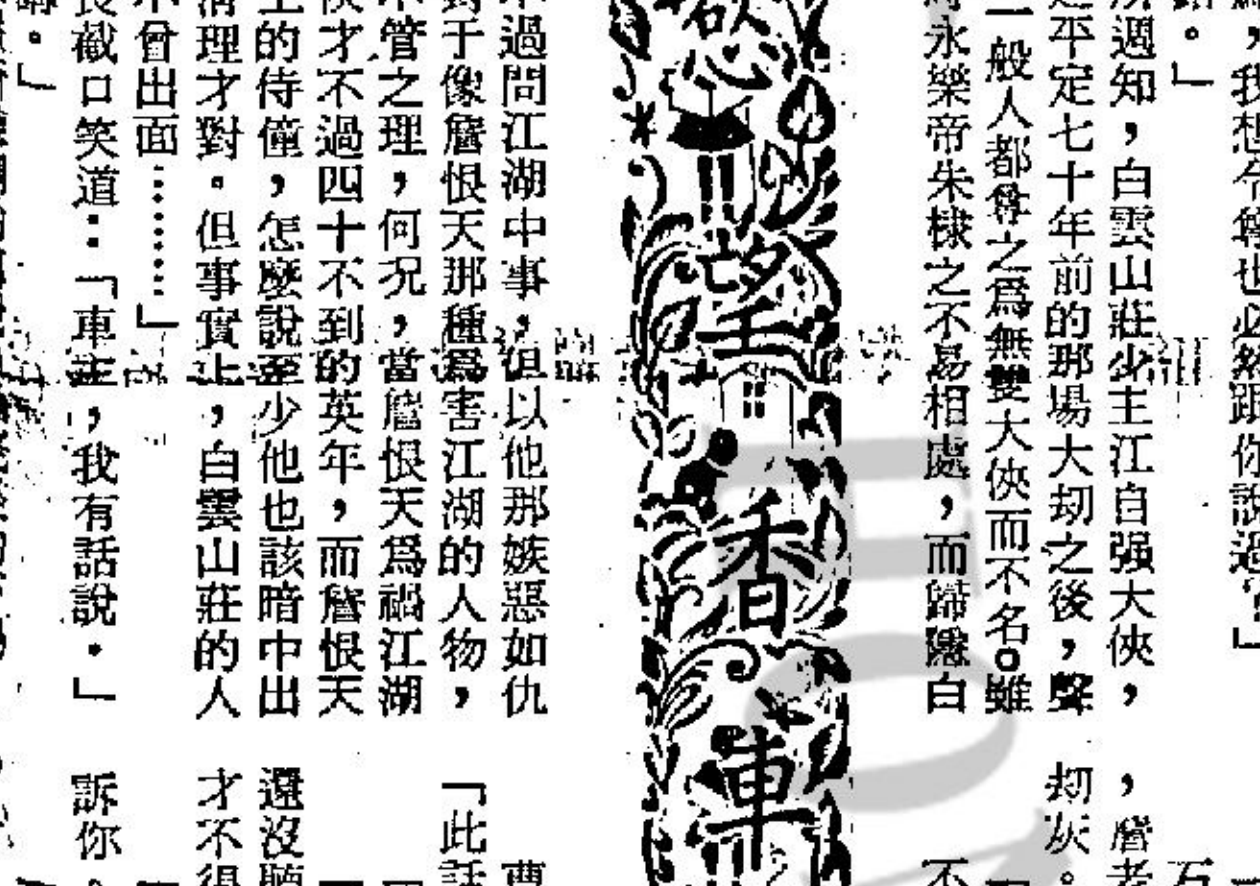 ，我想令尊也必然跟你說過？」
。」
週知，白雲山莊少主江自强大俠，
平定七十年前的那場大刼之後，聲
一般人都尊之爲無雙大俠而不名。雖
永樂帝朱棣之不易相處，而歸隱白
慾望香車
過問江湖中事，但以他那嫉惡如仇
于像詹恨天那種爲害江湖的人物，
管之理，何况，當詹恨天爲禍江湖
才不過四十不到的英年，而詹恨天
的侍僮，怎麼說至少他也該暗中出
理才對。但事實上，白雲山莊的人
曾出面………」
截口笑道：「車主，我有話說。」
。」
，詹老
刼灰。
不
曹
「此話
還沒聽
才不得
訴你，